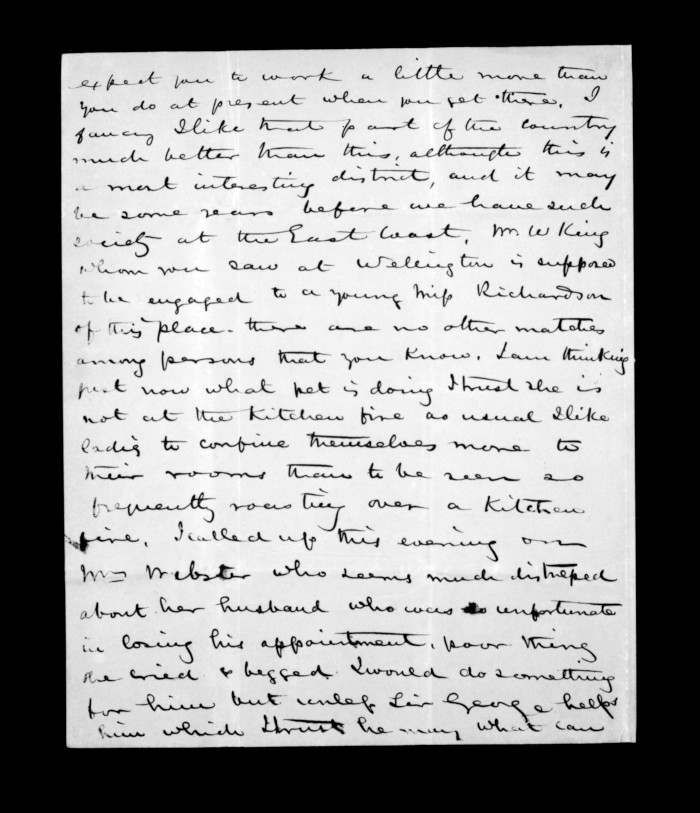 expect you to work a little more than
you do at present when you get there. I
fancy I like that part of the country
much better than this, although this is
a most interesting district, and it may
be some years before we have such
society at the East Coast. Mr W King
whom you saw at Wellington is supposed
to be engaged to a young Miss Richardson
of this place. there are no other matches
among persons that you know. I am thinking
just now what pet is doing I trust she is
not at the Kitchen fire as usual I like
ladies to confine themselves more to
their rooms than to be seen so
frequently roasting over a Kitchen
fire. I called up this evening on
Mrs Webster who seems much distressed
about her husband who was so unfortunate
in losing his appointment. poor thing
she cried & begged I would do something
for him but unless Sir George helps
him which I trust he may what can